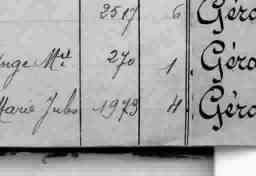 2517 6 Géro
Ange Mel 270 1 Géro
Marie Jules 1973 4 Géro